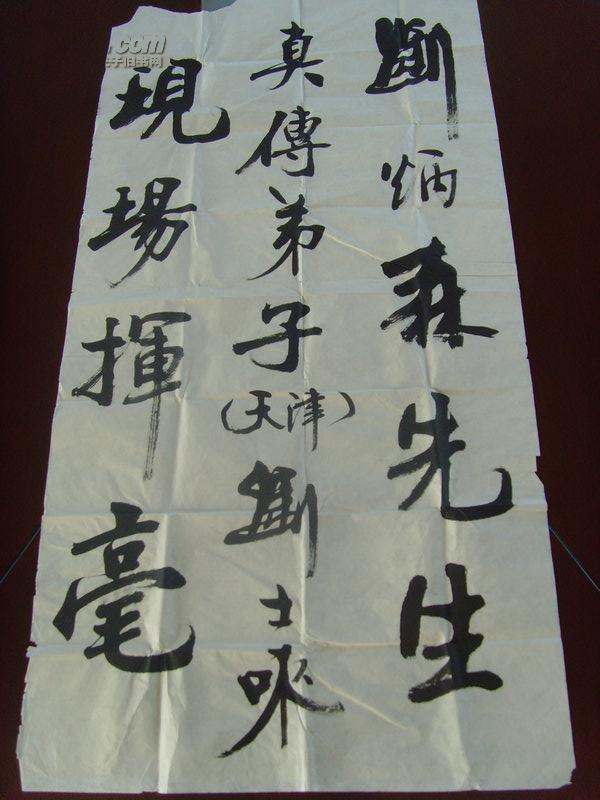 劉炳森先生
真傳弟子(天津)劉士
現場揮毫
.com
子旧书网